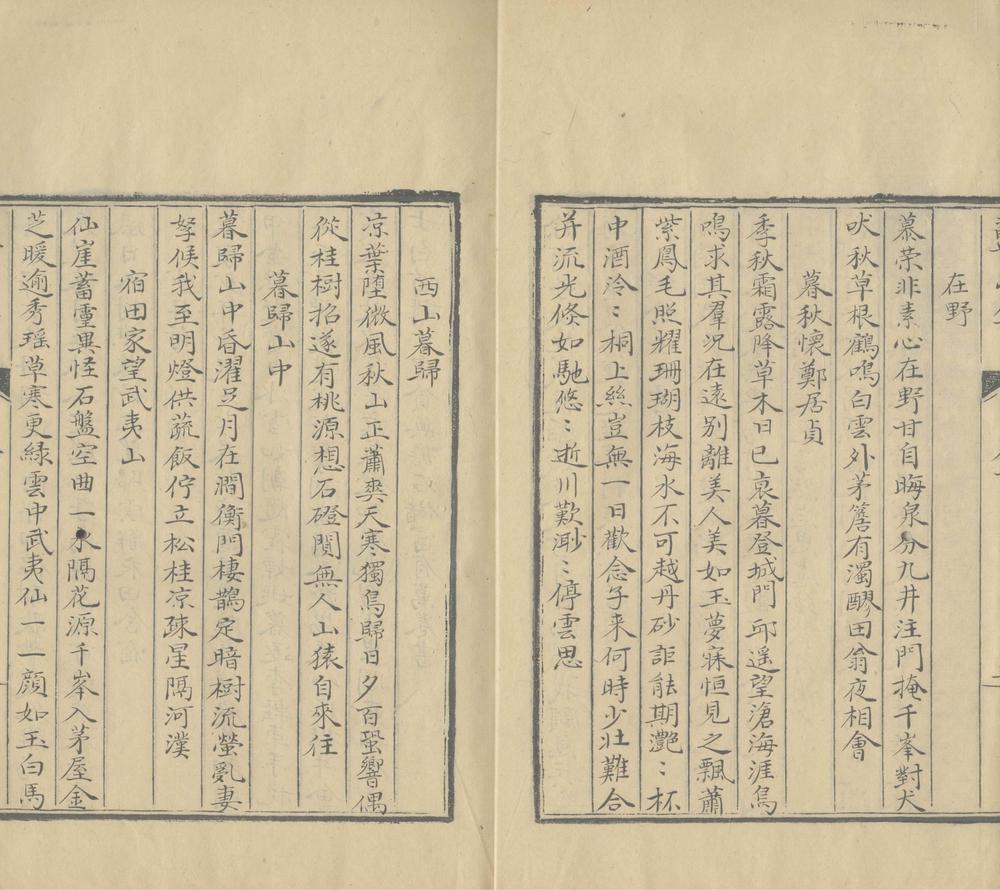 在野
慕荣非素心在野甘自晦泉分九井注門掩千峯對犬
吠秋草根鶴鳴白雲外茅簷有濁醪田翁夜相會
暮秋懷鄭居貞
季秋霜露降草木日已哀暮登城門邱遥望滄海涯鳥
鳴求其羣况在遠别離美人美如玉夢寐恒見之飄蕭
紫鳳毛照耀珊瑚枝海水不可越丹砂詎能期灔〻杯
中酒泠〻桐上絲豈無一日歡念子来何時少壮難合
并流光倏如馳悠〻逝川歎渺〻停雲思
西山暮歸
凉葉墮微風秋山正蕭爽天寒獨鳥歸日夕百蛩響偶
從桂樹招遂有桃源想石磴閴無人山猿自來往
暮歸山中
暮歸山中昏濯足月在澗衡門棲鵲定暗樹流螢亂妻
孥候我至明燈供蔬飯佇立松桂凉疎星隔河漢
宿田家望武夷山
仙崖蓄靈異怪石盤空曲一水隔花源千峯入茅屋金
芝暖逾秀瑶草寒更緑雲中武夷仙一一顔如玉白馬